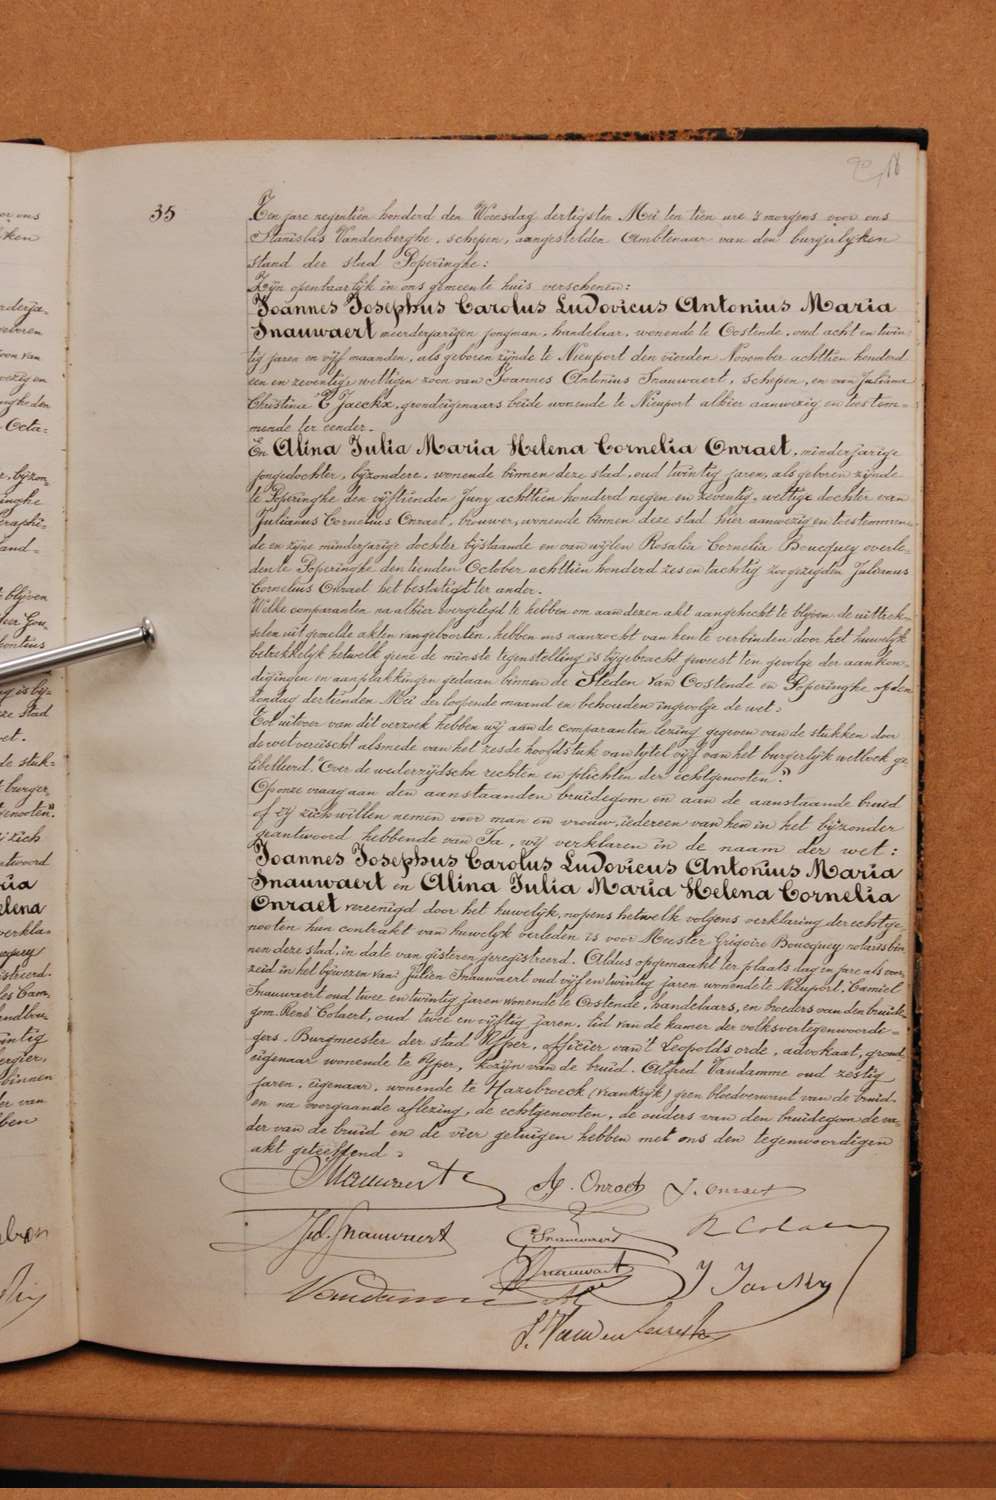 18
35
Ten jare negentien honderd den Woensdag dertigsten Mei ten tien ure 's morgens voor ons
Stanislas Vandenberghe, schepen, aangestelden Ambtenaar van den burgerlyken
stand der stad Poperinghe:
Zyn openbaarlyk in ons gemeente huis verschenen:
Joannes Josephus Carolus Ludovicus Antonius Maria
Snauwaert meerderjarigen jongman, handelaar, wonende te Oostende, oud acht en twin
tig jaren en vyf maanden, als geboren zynde te Nieuport den vierden November achttien honderd
een en zeventig, wettigen zoon van Joannes Antonius Snauwaert, schepen, en van Juliana
Christina T'Jaeckx, grondeigenaars beide wonende te Nieuport alhier aanwezig en toestem-
mende ter eender.
En Alina Julia Maria Helena Cornelia Onraet, minderjarige
jongedochter, byzondere, wonende binnen deze stad, oud twintig jaren, als geboren zynde
te Poperinghe den vyftienden Juny achttien honderd negen en zeventig, wettige dochter van
Julianus Cornelius Onraet, brouwer, wonende binnen deze stad hier aanwezig en toestemmen
de en zyne minderjarige dochter bystaande en van wylen Rosalia Cornelia Boucquey overle-
den te Poperinghe den tienden October achttien honderd zes en tachtig zoo gezegden Julianus
Cornelius Onraet het bestatigt ter ander.
Welke comparanten na alhier overgelegd te hebben om aan dezen akt aangehecht te blyven de uittrek-
selen uit gemelde akten van geboorten, hebben ons aanzocht van hen te verbinden door het huwelyk
betrekkelyk hetwelk geene de minste tegenstelling is bygebracht geweest ten gevolge der aankon-
digingen en aanplakkingen gedaan binnen de Steden van Oostende en Poperinghe op den
zondag dertienden Mei der loopende maand en behouden ingevolge de wet:
Tot uitvoer van dit verzoek hebben wy aan de comparanten lezing gegeven van de stukken door
de wet vereischt alsmede van het zesde hoofdstuk van tytel vyf van het burgerlyk wetboek ge-
libelleerd. "Over de wederzydsche rechten en plichten der echtgenooten."
Op onze vraag aan den aanstaanden bruidegom en aan de aanstaande bruid
of zy zich willen nemen voor man en vrouw, iedereen van hen in het byzonder
geantwoord hebbende van Ja, wy verklaren in de naam der wet:
Joannes Josephus Carolus Ludovicus Antonius Maria
Snauwaert en Alina Julia Maria Helena Cornelia
Onraet vereenigd door het huwelyk, nopens hetwelk volgens verklaring der echtge-
nooten hun contrakt van huwelyk verleden is voor Meester Grégoire Boucquey notaris bin
nen deze stad, in date van gisteren geregistreerd. Aldus opgemaakt ter plaats dag en jare als voor-
zeid in het bywezen van: Julien Snauwaert oud vyf en twintig jaren wonende te Nieuport, Camiel
Snauwaert oud twee en twintig jaren wonende te Oostende, handelaars, en broeders van den bruide
gom, René Colaert, oud twee en vyftig jaren, lid van de kamer der volksvertegenwoorde-
gers, Burgmeester der stad Yper, officier van 't Leopolds orde, advokaat, grond
eigenaar wonende te Yper, kozyn van de bruid, Alfred Vandamme oud zestig
jaren, eigenaar, wonende te Hazebroeck (Frankryk) geen bloedverwant van de bruid
en na voorgaande aflezing, de echtgenooten, de ouders van den bruidegom de va-
der van de bruid en de vier getuigen hebben met ons den tegenwoordigen
akt geteekend:
Snauwaert
A. Onraet
J. Onraet
Jul. Snauwaert
C Snauwaert
R Colaert
Snauwaert
Vandamme
S. Vandenberghe